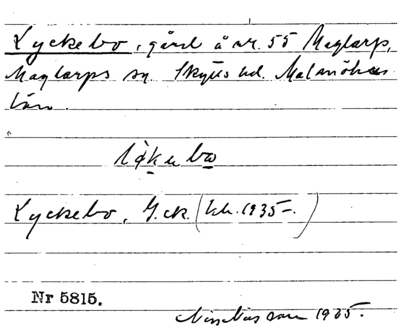 Lyckebo, gård å nr. 55 Maglarp,
Maglarps sn. Skytts hd. Malmöhus
län.
Lyckebo, G.ck. (kh. 1935-.)
Nr 5815.
1935.